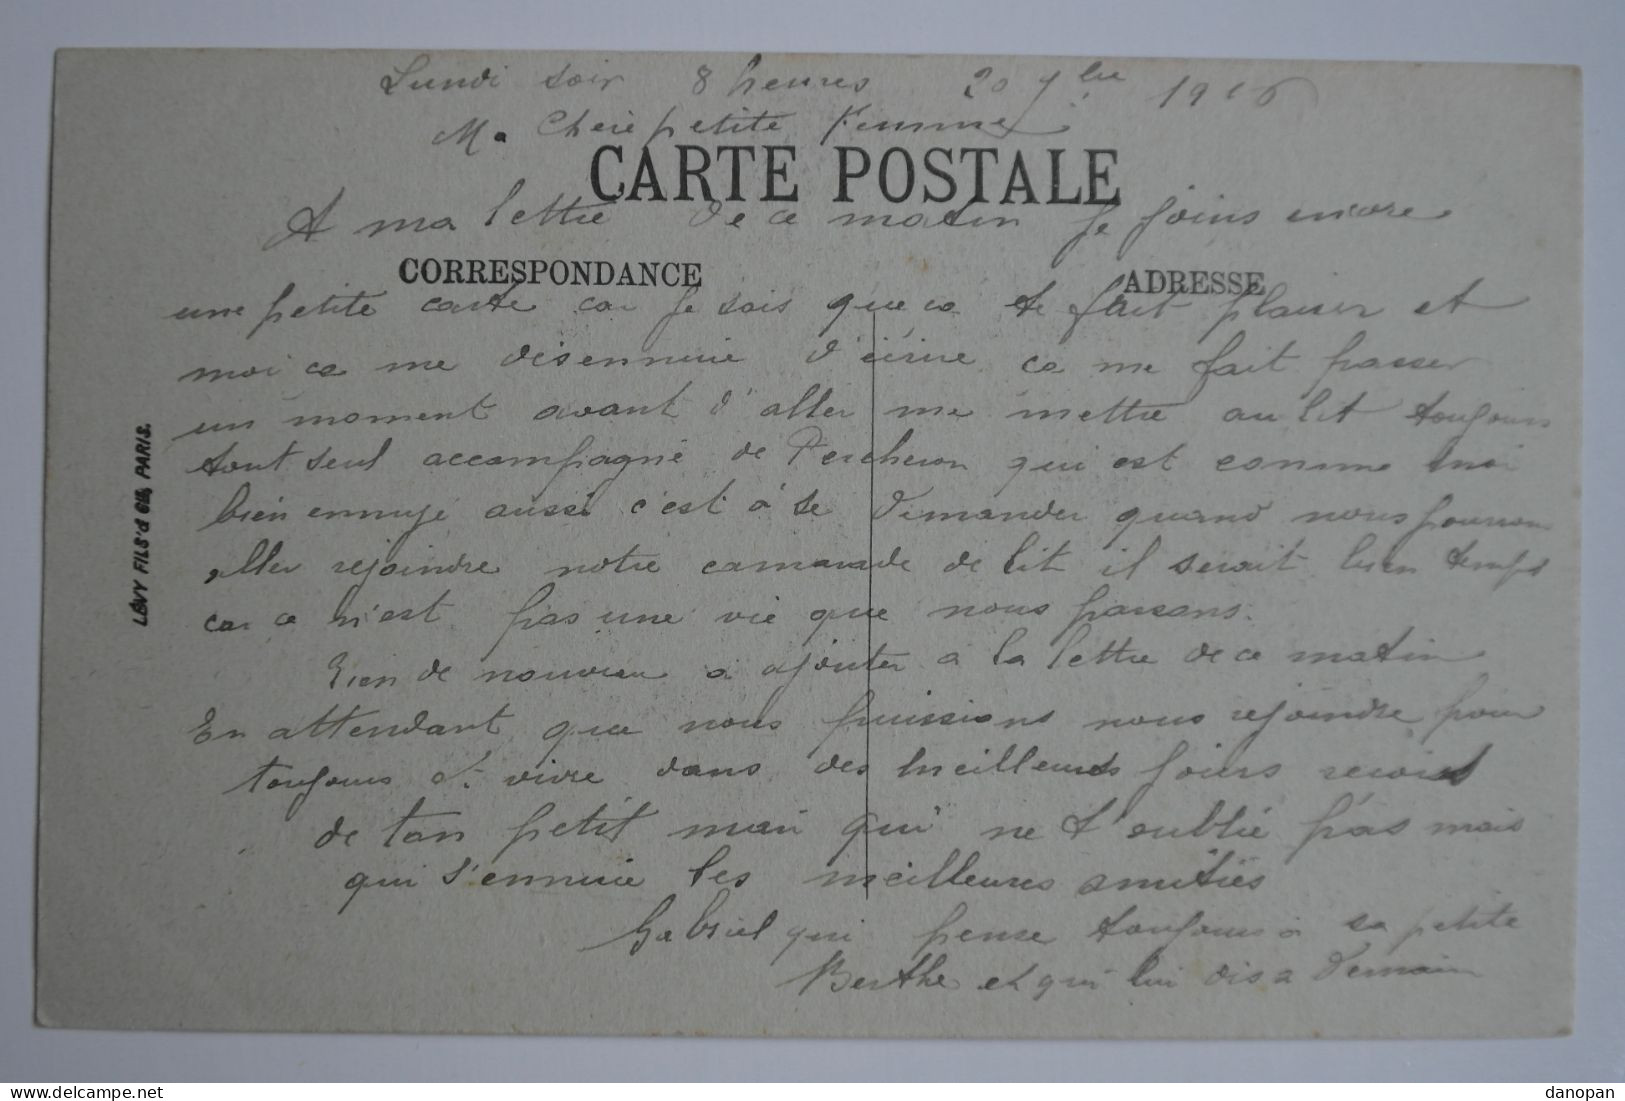 Lundi soir 8 heures 20 7bre 1916
Ma Cheie petite Femme
CARTE POSTALE
A ma lettre de ce matin je joins encore
CORRESPONDANCE
ADRESSE
une petite carte car je sais que ca te fait plaisir et
moi ca me désennuie d'écrire ca me fait passer
un moment avant d'aller me mettre au lit toujours
tout seul accompagné de Percheron qui est comme moi
bien ennuyé aussi c'est à se demander quand nous pourrons
aller rejoindre notre camarade de lit il serait bien temps
car ce n'est pas une vie que nous passons.
Rien de nouveau a ajouter a la lettre de ce matin
En attendant que nous puissions nous rejoindre pour
toujours et vivre dans des meilleurs jours recois
de ton petit mari qui ne t'oublie pas mais
qui s'ennuie les meilleures amitiés
Gabriel qui pense toujours a sa petite
Berthe et qui lui dis a demain
LÉVY FILS & Cie, PARIS.
danopan